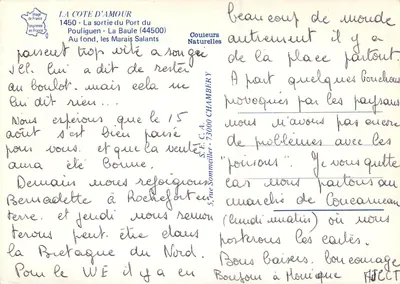 LA COTE D'AMOUR
1450 - La sortie du Port du
Pouliguen - La Baule (44500)
Au fond, les Marais Salants
Couleurs
Naturelles
passent trop vite a songé
J.Cl. lui a dit de rester
au boulot. mais cela ne
lui dit rien...
Nous espérons que le 15
août s'est bien passé
pour vous. et que la vente
aura été bonne.
Demain nous rejoignons
Bernadette à Rochefort en
terre. et jeudi nous remon
terons peut être dans
la Bretagne du Nord.
Pour le WE il y a en
S.E.C.A.
5, rue Sommeiller - 73000 CHAMBÉRY
beaucoup de monde
autrement il y a
de la place partout.
A part quelques bouchons
provoqués par les paysans
nous n'avons pas encore
de problèmes avec les
"poisons". Je vous quitte
car nous partons au
marché de Concarneau
(lundi matin) où nous
posterons les cartes.
Bons baisers. bon courage
Bonjour à Monique